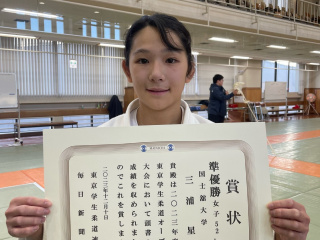 賞状
準優勝 女子52
国士舘大学
三浦星
貴殿は二〇二三年度
東京学生柔道オープ
大会において頭書
成績を収められまし
のでこれを賞しま
二〇二三年十二月十日
東京学生柔道連
毎日新聞